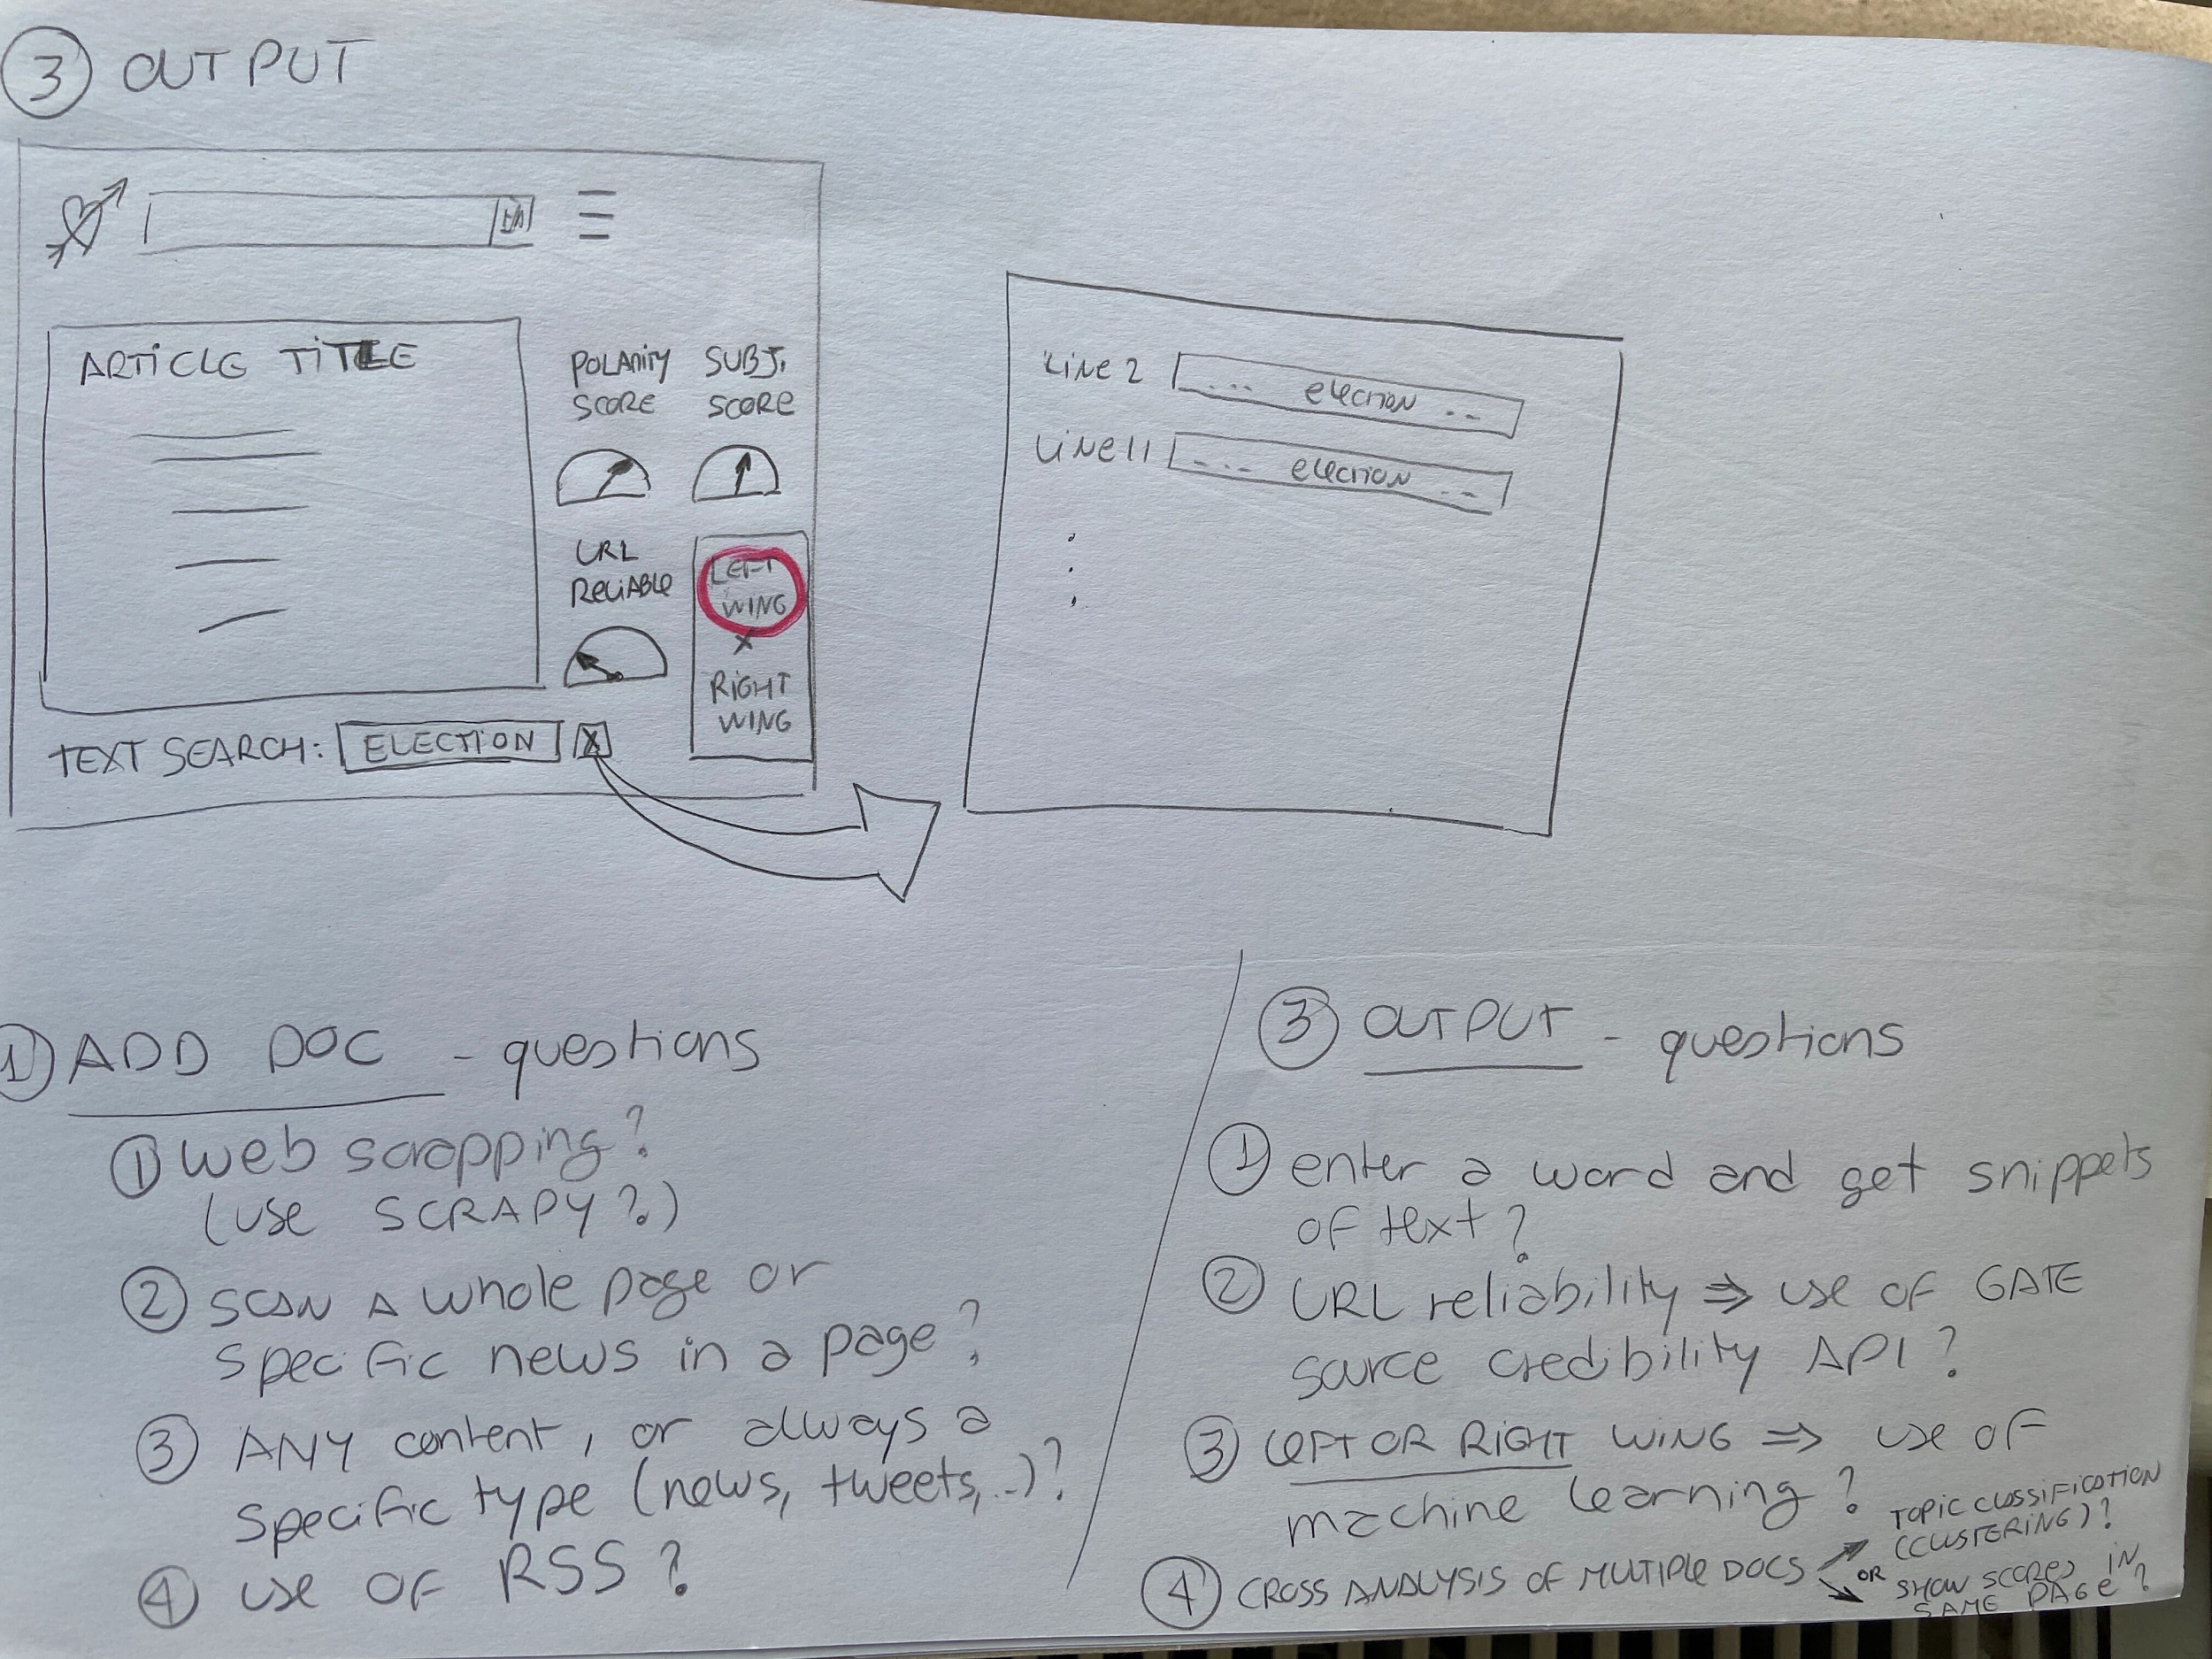 3 OUTPUT
ARTICLE TITLE
POLARITY
SCORE
SUBJ.
SCORE
URL
RELIABLE
LEFT
WING
X
RIGHT
WING
TEXT SEARCH: ELECTION X
LINE 2 ... election ..
LINE 11 ... election ..
1 ADD DOC - questions
1 web scrapping?
(use SCRAPY?)
2 SCAN A whole page or
specific news in a page?
3 ANY content, or always a
specific type (news, tweets,..)?
4 use of RSS?
3 OUTPUT - questions
1 enter a word and get snippets
of text?
2 URL reliability ⇒ use of GATE
source credibility API?
3 LEFT OR RIGHT WING ⇒ use of
machine learning?
4 CROSS ANALYSIS OF MULTIPLE DOCS
TOPIC CLASSIFICATION
(CLUSTERING)?
OR
SHOW SCORES IN
SAME PAGE?